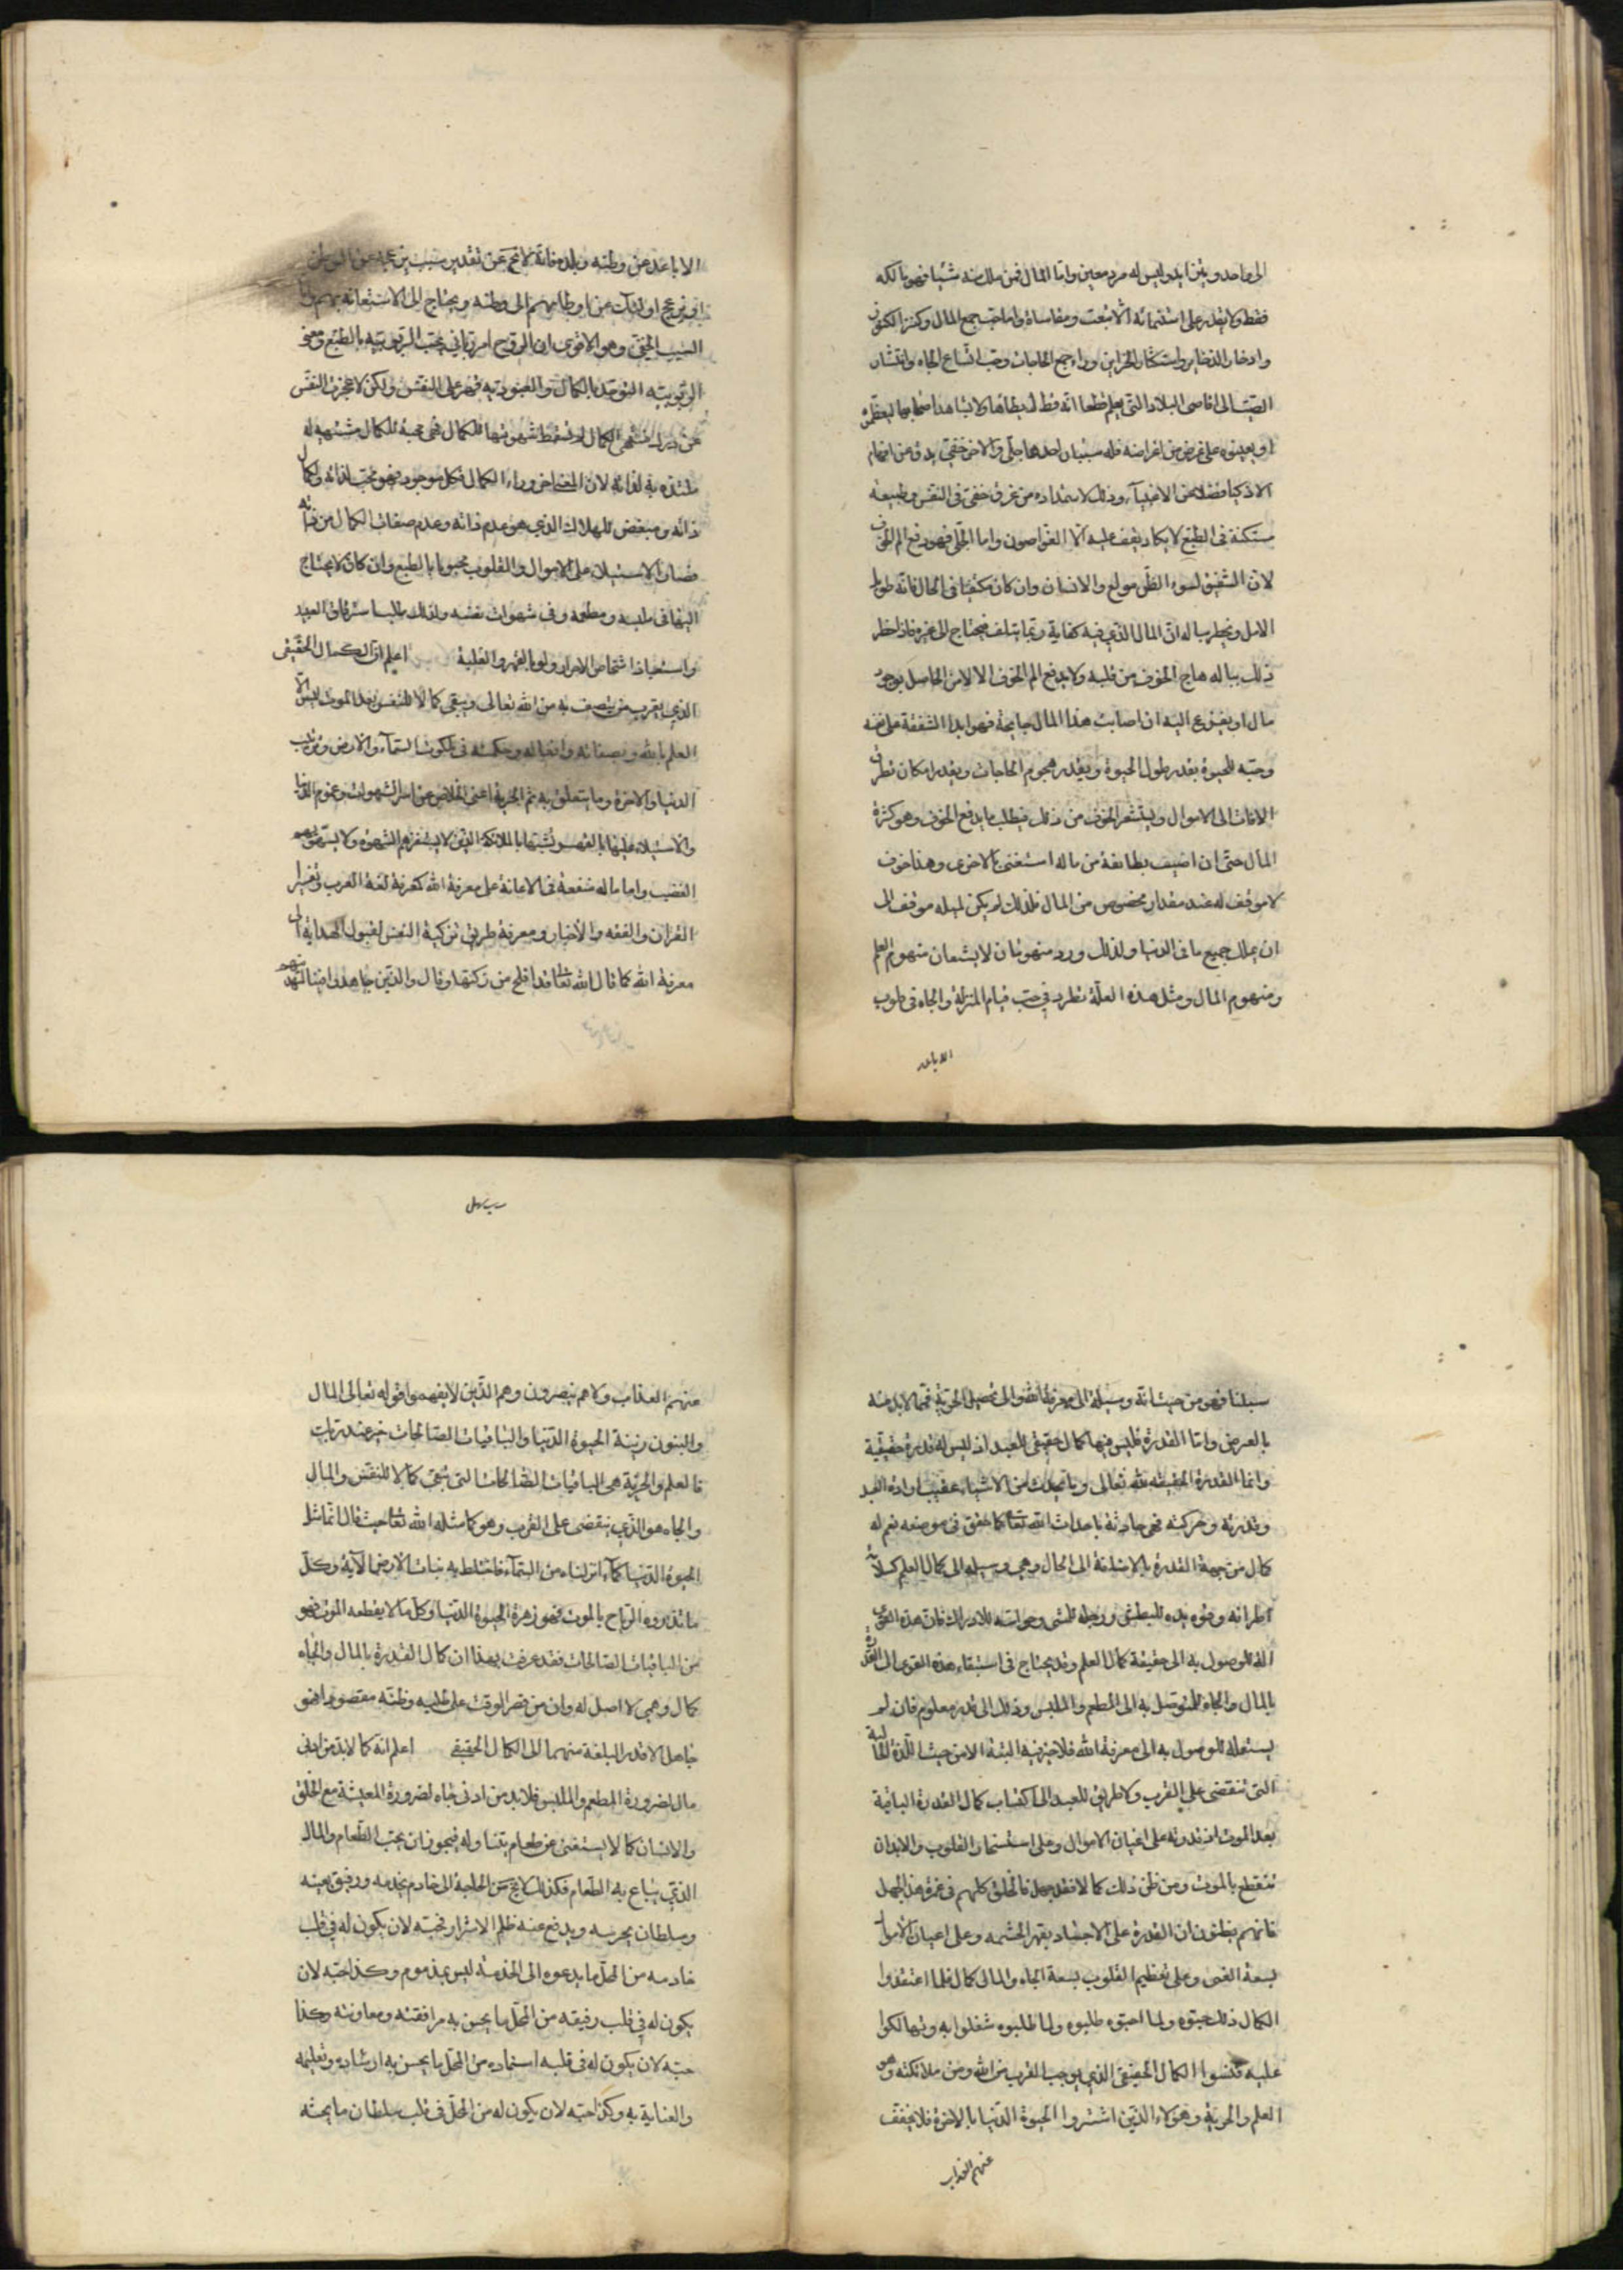 الى واحد ويتزايد وليس له مرد معين واما المال فمن ملك منه شيئا فهو مالكه
فقط ولا يقدر على استنمائه الا بتعب ومقاساة واما حب جمع المال وكنز الكنوز
وادخار الذخاير واستكثار الخزاين وراء جميع الحاجات وحب اتساع الجاه وانتشار
الصيت الى اقاصى البلاد التى يعلم قطعا انه قط لا يطاها ولا يشاهد اصحابها ليعظموه
او يعينوه على غرض من اغراضه فله سببان احدهما جلى والاخر خفى يدق عن افهام
الاذكيا فضلا عن الاغبيآء وذلك لاستمداده من عرق خفى فى النفس وطبيعة
مستكنة فى الطبع لا يكاد يقف عليه الا الغواصون واما الجلى فهو دفع الم الخوف
لان الشفيق لسوء الظن مولع والانسان وان كان مكفيا فى الحال فانه طويل
الامل ويخطر بباله ان المال الذى فيه كفاية ربما يتلف فيحتاج الى غيره فاذا خطر
ذلك بباله هاج الخوف من قلبه ولا يدفع الم الخوف الا الامن الحاصل بوجود
مال اخر يفزع اليه ان اصابت هذا المال جايحة فهو ابدا لشفقته على نفسه
وحبه للحيوة يقدر طول الحيوة ويقدر هجوم الحاجات ويقدر امكان تطرق
الافات الى الاموال ويستشعر الخوف من ذلك فيطلب ما يدفع الخوف وهو كثرة
المال حتى ان اصيب بطائفة من ماله استغنى بالاخرى وهذا خوف
لا موقف له عند مقدار مخصوص من المال فلذلك لم يكن لميله موقف الى
ان يملك جميع ما فى الدنيا ولذلك ورد منهومان لا يشبعان منهوم العلم
ومنهوم المال ومثل هذه العلة تطرد فى حب قيام المنزلة والجاه فى قلوب
الاباعد
الاباعد عن وطنه وبلده فانه لا يخ عن تقدير سبب يزعجه عن الوطن
او يزعج اولئك عن اوطانهم الى وطنه ويحتاج الى الاستعانة بهم واما
السبب الخفى وهو الاقوى ان الروح امر ربانى يحب الربوبية بالطبع ومعنى
الربوبية التوحد بالكمال والعبودية قهر على النفس ولكن لما عجزت النفس
عن درك منتهى الكمال لم تسقط شهوتها للكمال فهى محبة للكمال مشتهية له
ملتذه به لذاته لا لمعنى اخر وراء الكمال فكل موجود فهو محب لذاته ولكمال
ذاته ومبغض للهلاك الذى هو عدم ذاته وعدم صفات الكمال من ذاته
فصار الاستيلاء على الاموال والقلوب محبوبا بالطبع وان كان لا يحتاج
اليها فى ملبسه ومطعمه وفى شهوات نفسه ولذلك طلب استرقاق العبيد
واستعباد اشخاص الاحرار ولو بالقهر والغلبة اعلم ان الكمال الحقيقى
الذى يقرب من يتصف به من الله تعالى ويبقى كمالا للنفس بعد الموت ليس الا
العلم بالله وبصفاته وافعاله وحكمته فى ملكوت السمآء والارض وترتيب
الدنيا والاخرة وما يتعلق به ثم الحرية اعنى الخلاص عن اسر الشهوات وغموم الدنيا
والاستيلاء عليها بالقهر تشبها بالملائكة الذين لا يستفزهم الشهوة ولا يستهويهم
الغضب واما ما له منفعة فى الاعانة على معرفة الله كمعرفة لغة العرب وتفسير
القران والفقه والاخبار ومعرفة طريق تزكية النفس لقبول الهداية الى
معرفة الله كما قال الله تعا قد افلح من زكيها وقال والذين جاهدوا فينا لنهدينهم
سبلنا فهو من حيث انه وسيلة الى معرفة الله والى تحصيل الحرية فمما لا بد منه
بالعرض واما القدرة فليس فيها كمال حقيقى للعبد اذ ليس له قدرة حقيقية
وانما القدرة الحقيقيه لله تعالى وما يحدث من الاشياء عقيب ارادة العبد
وقدرته وحركته فهى حادثة باحداث الله تعا كما حقق فى موضعه نعم له
كمال من جهة القدرة بالاضافة الى الحال وهى وسيلة الى كمال العلم كسلامة
اطرافه وقوة يده للبطش ورجله للمشى وحواسه للادراك فان هذه القوى
الة للوصول به الى حقيقة كمال العلم وقد يحتاج فى استبقاء هذه القوى الى القدرة
بالمال والجاه للتوصل به الى المطعم والملبس وذلك الى قدر معلوم فان لم
يستعمله للوصول به الى معرفة الله فلا خير فيه البتة الا من حيث اللذة الحالية
التى تنقضى على القرب ولا طريق للعبد الى اكتساب كمال القدرة الباقية
بعد الموت اذ قدرته على اعيان الاموال وعلى استسخار القلوب والابدان
تنقطع بالموت ومن ظن ذلك كمالا فقد جهل فالخلق كلهم فى غمرة هذا الجهل
فانهم يظنون ان القدرة على الاجساد بقهر الحشمه وعلى اعيان الاموال
بسعة الغنى وعلى تعظيم القلوب بسعة الجاه والمال كمال فلما اعتقدوا
الكمال ذلك احبوه ولما احبوه طلبوه ولما طلبوه شغلوا به وتهالكوا
عليه فنسوا الكمال الحقيقى الذى يوجب القرب من الله ومن ملائكته وهو
العلم والحرية وهؤلاء الذين اشتروا الحيوة الدنيا بالاخرة فلا يخفف
عنهم العذاب
عنهم العذاب ولا هم ينصرون وهم الذين لا يفهموا قوله تعالى المال
والبنون زينة الحيوة الدنيا والباقيات الصالحات خير عند ربك
فالعلم والحرية هى الباقيات الصالحات التى تبقى كمالا للنفس والمال
والجاه هو الذى ينقضى على القرب وهو كما مثله الله تعا حيث قال انما مثل
الحيوة الدنيا كمآء انزلناه من السمآء فاختلط به نبات الارض الآية وكل
ما تذروه الرياح بالموت فهو زهرة الحيوة الدنيا وكل ما لا يقطعه الموت فهو
من الباقيات الصالحات فقد عرفت بهذا ان كمال القدرة بالمال والجاه
كمال وهمى لا اصل له وان من قصر الوقت على طلبه وظنه مقصودا فهو
جاهل الا قدر البلغة منهما الى الكمال الحقيقى اعلم انه كما لا بد من ادنى
مال لضرورة المطعم والملبس فلا بد من ادنى جاه لضرورة المعيشة مع الخلق
والانسان كما لا يستغنى عن طعام يتناوله فيجوز ان يحب الطعام والمال
الذى يبتاع به الطعام فكذلك لا يخ عن الحاجة الى خادم يخدمه ورفيق يعينه
وسلطان يحرسه ويدفع عنه ظلم الاشرار فحبه لان يكون له فى قلب
خادمه من المحل ما يدعوه الى الخدمة ليس بمذموم وكذا حبه لان
يكون له فى قلب رفيقه من المحل ما يحسن به مرافقته ومعاونته وكذا
حبه لان يكون له فى قلب استاده من المحل ما يحسن به ارشاده وتعليمه
والعناية به وكذا حبه لان يكون له من المحل فى قلب سلطان ما يحثه